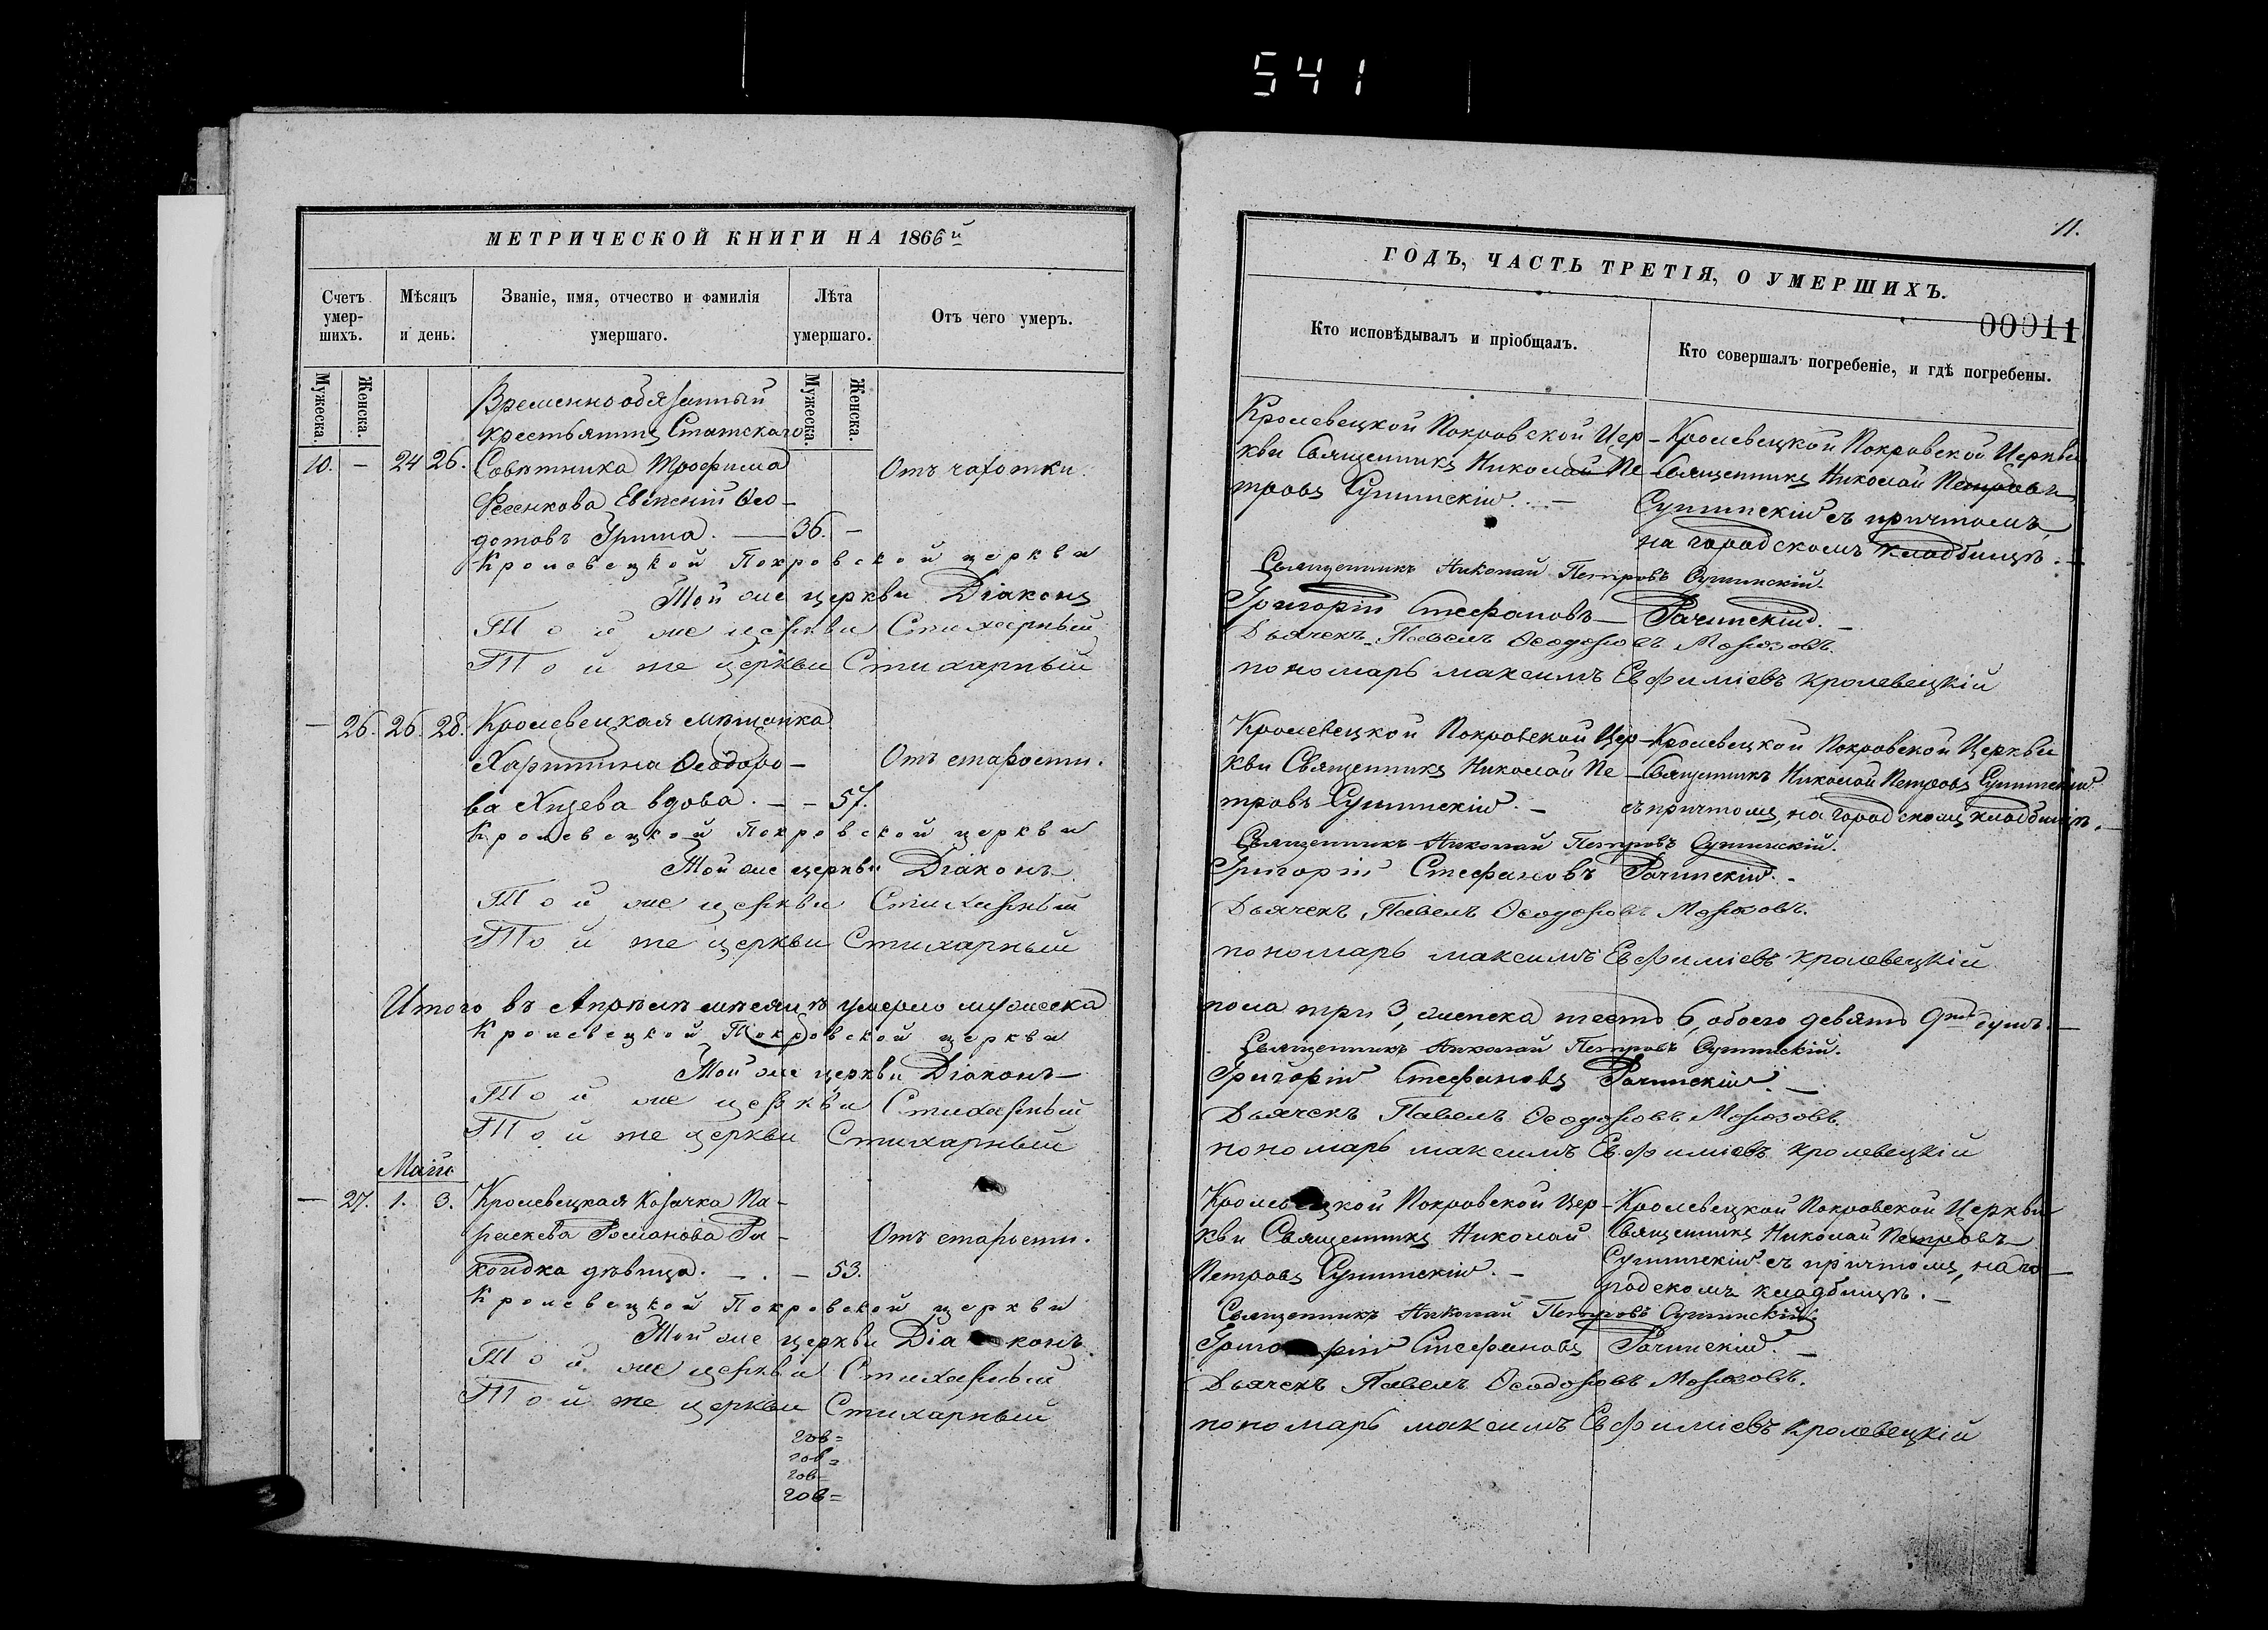 541
МЕТРИЧЕСКОЙ КНИГИ НА 1866й
Счетъ умерших.
Мѣсяцъ и день.
Званіе, имя, отчество и фамилія умершаго.
Лѣта умершаго.
Отъ чего умеръ.
Мужеска.
Женска.
Мужеска.
Женска.
Временнообязанный
крестьянинъ Статскаго
10. — 24 26. Совѣтника Трофима Отъ чахотки.
Фесенкова Евгеній Ѳео-
дотовъ Гриша. — 36. —
Кролевецкой Покровской церкви
Той же церкви Діаконъ
Той же церкви Стихарный
Той же церкви Стихарный
— 26. 26. 28. Кролевецкая мѣщанка
Харитина Ѳеодоро- Отъ старости.
ва вдова. — — 57.
Кролевецкой Покровской церкви
Той же церкви Діаконъ
Той же церкви Стихарный
Той же церкви Стихарный
Итого въ Апрѣлѣ мѣсяцѣ умерло мужеска
Кролевецкой Покровской церкви
Той же церкви Діаконъ
Той же церкви Стихарный
Той же церкви Стихарный
Май
— 27. 1. 3. Кролевецкая Козачка Па-
раскева Романова Отъ старости.
дѣвица. — . — 53.
Кролевецкой Покровской церкви
Той же церкви Діаконъ
Той же церкви Стихарный
Той же церкви Стихарный
11.
00011
ГОДЪ, ЧАСТЬ ТРЕТІЯ, О УМЕРШИХЪ.
Кто исповѣдывалъ и пріобщалъ.
Кто совершалъ погребеніе, и гдѣ погребены.
Кролевецкой Покровской Цер- Кролевецкой Покровской Церкви
кви Священникъ Николай Пе- Священникъ Николай Петровъ
тровъ Сушинскій. — Сушинскій съ причтомъ,
на городскомъ кладбищѣ. —
Священникъ Николай Петровъ Сушинскій.
Григорій Стефановъ Рачинскій. —
Дьячекъ Павелъ Ѳеодоровъ Морозовъ.
пономарь максимъ Евфиміевъ кролевецкій
Кролевецкой Покровской Цер- Кролевецкой Покровской Церкви
кви Священникъ Николай Пе- Священникъ Николай Петровъ Сушинскій
тровъ Сушинскій. — съ причтомъ, на городскомъ кладбищѣ. —
Священникъ Николай Петровъ Сушинскій.
Григорій Стефановъ Рачинскій. —
Дьячекъ Павелъ Ѳеодоровъ Морозовъ.
пономарь максимъ Евфиміевъ кролевецкій
пола три 3, женска шесть 6, обоего девять 9ть душъ. —
Священникъ Николай Петровъ Сушинскій.
Григорій Стефановъ Рачинскій. —
Дьячекъ Павелъ Ѳеодоровъ Морозовъ.
пономарь максимъ Евфиміевъ кролевецкій
Кролевецкой Покровской Цер- Кролевецкой Покровской Церкви
кви Священникъ Николай Священникъ Николай Петровъ
Петровъ Сушинскій. — Сушинскій съ причтомъ, на го-
родскомъ кладбищѣ. —
Священникъ Николай Петровъ Сушинскій.
Григорій Стефановъ Рачинскій. —
Дьячекъ Павелъ Ѳеодоровъ Морозовъ.
пономарь максимъ Евфиміевъ кролевецкій